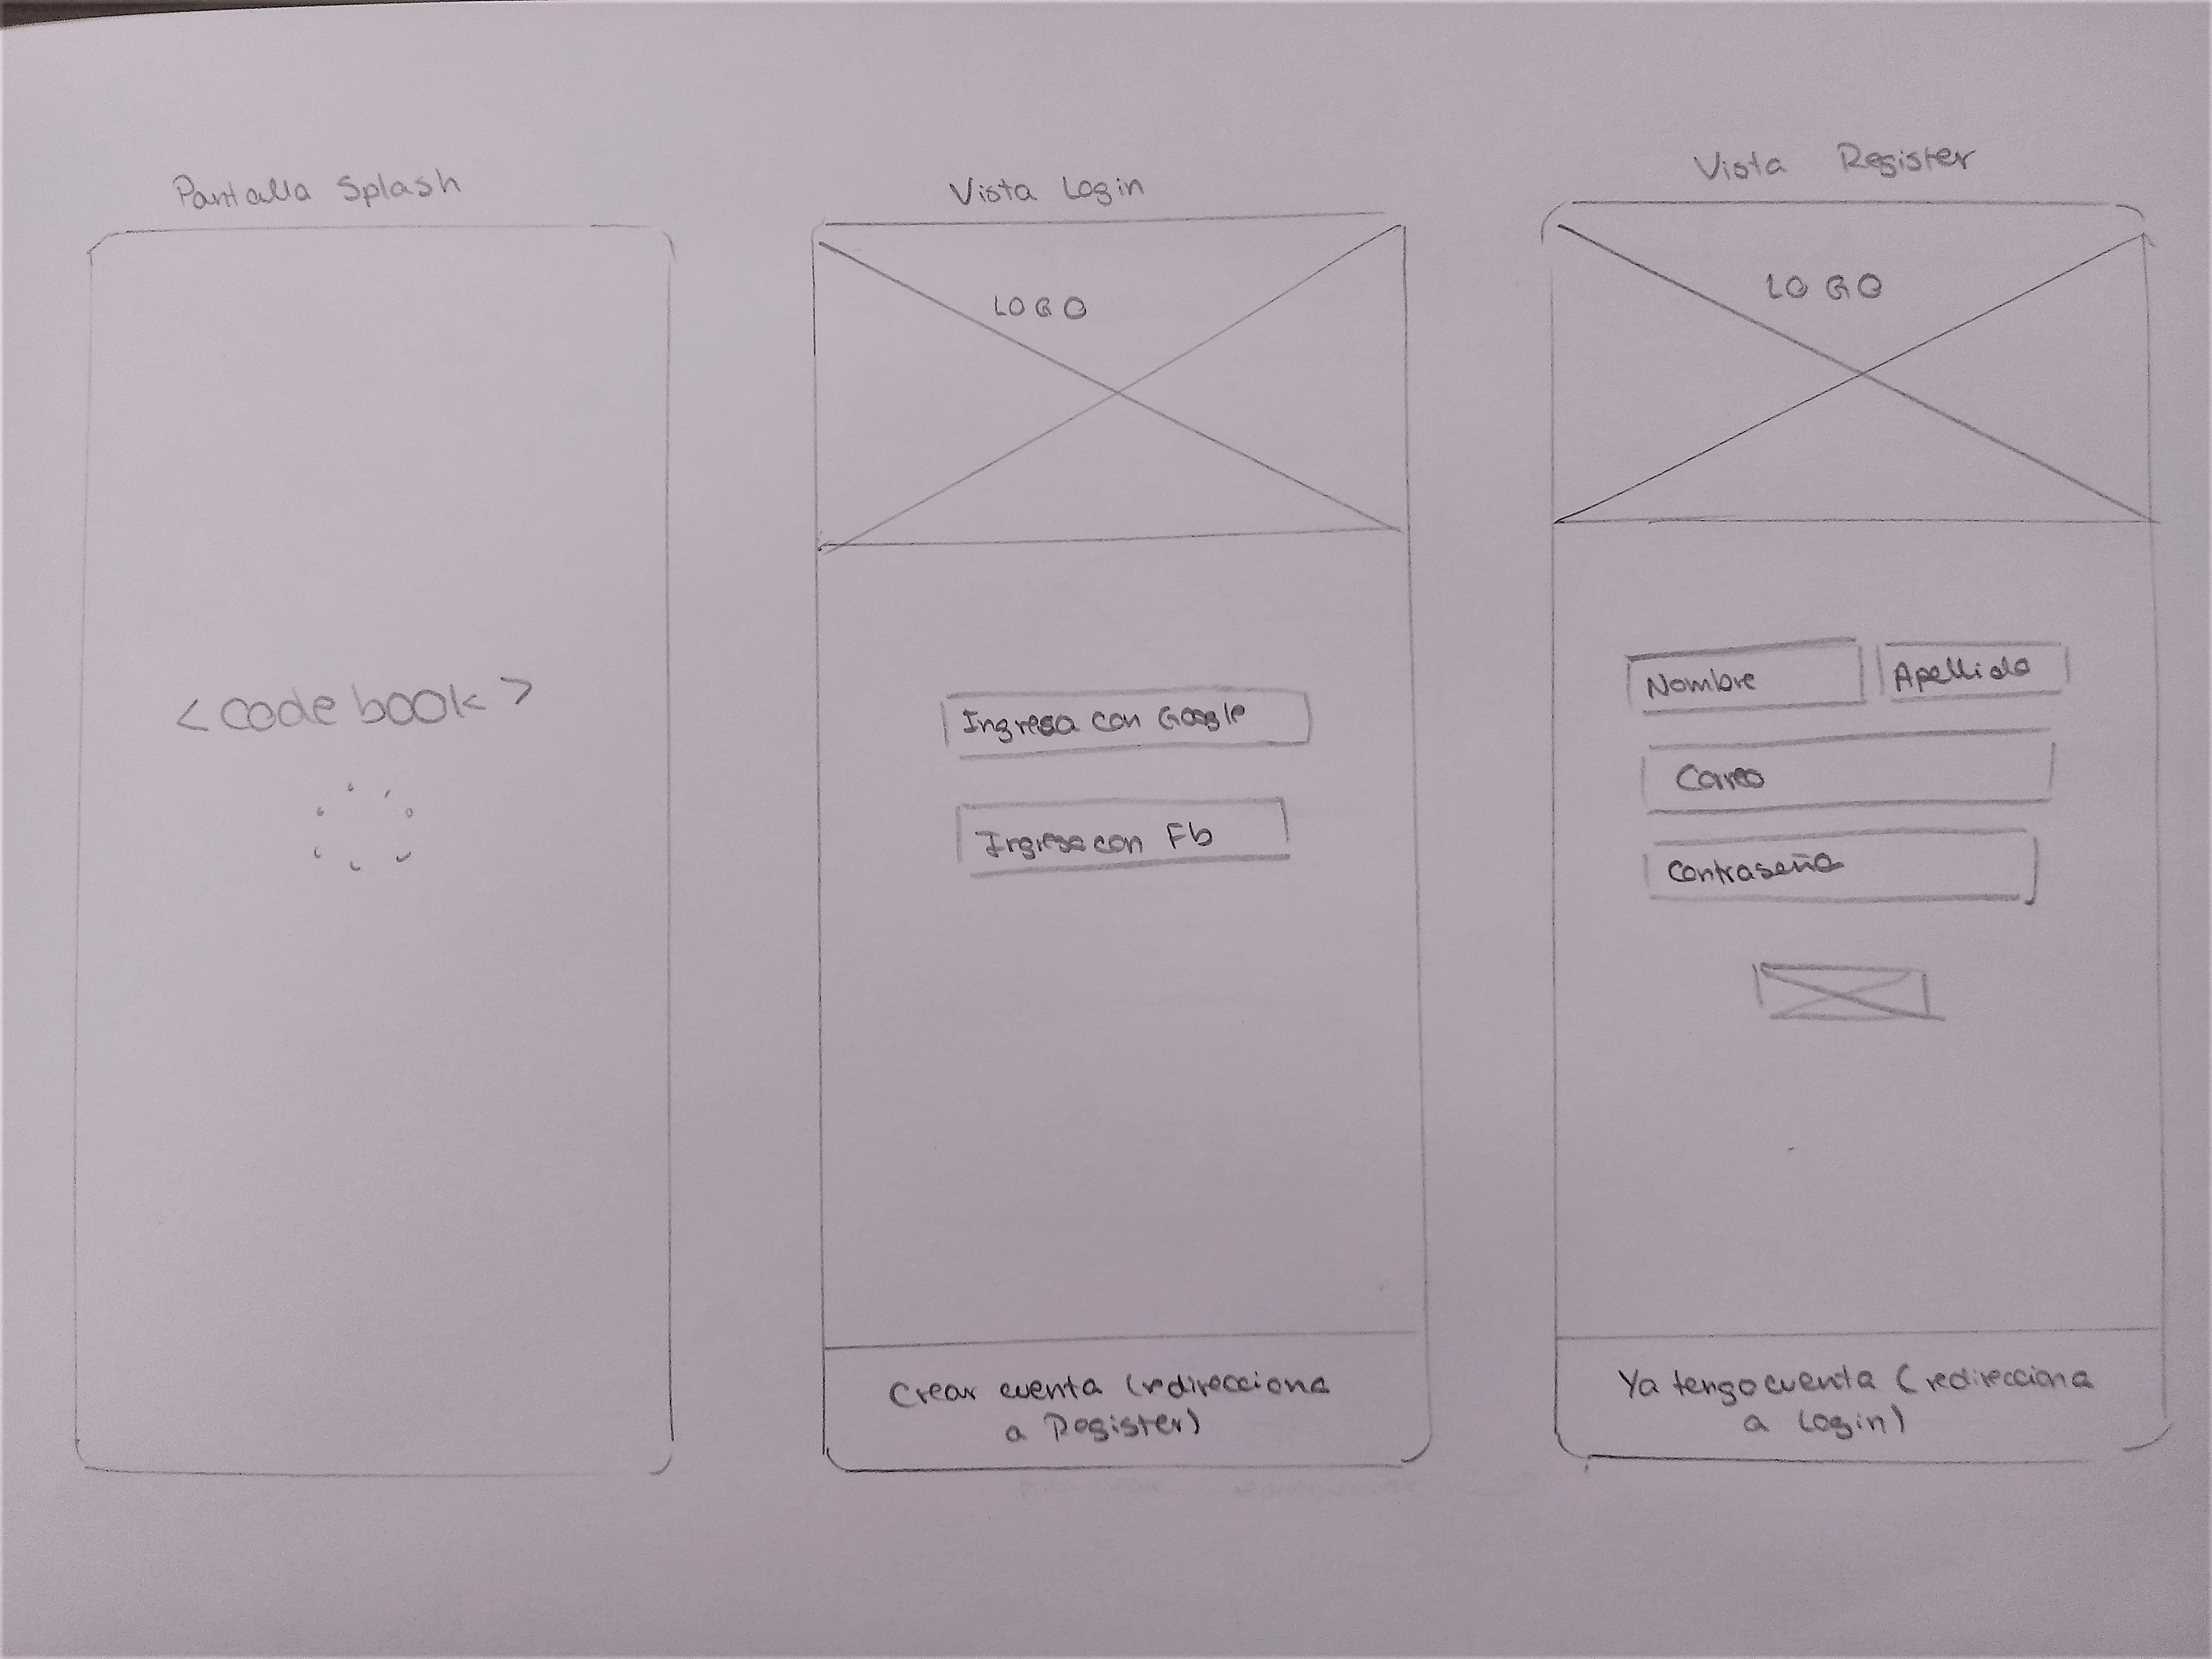 Pantalla Splash
<code book>
Vista Login
LOGO
Ingresa con Google
Ingresa con Fb
Crear cuenta (redirecciona
a Register)
Vista Register
LOGO
Nombre
Apellido
Correo
Contraseña
Ya tengo cuenta (redirecciona
a Login)